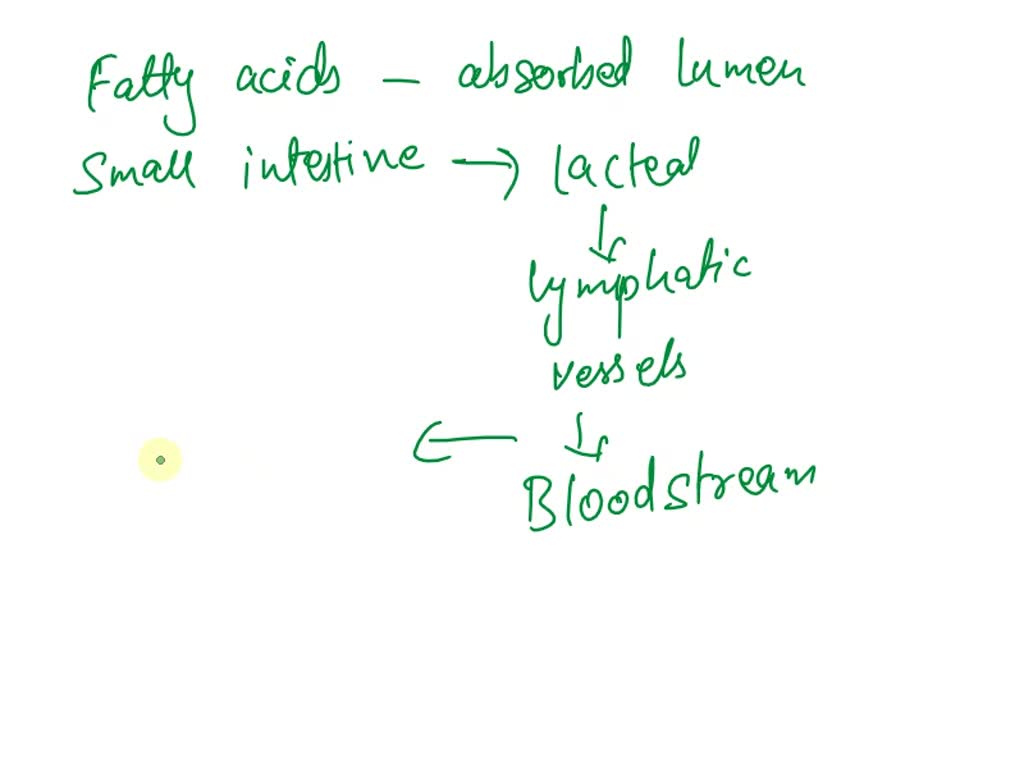 Fatty acids – absorbed lumen
Small intestine → lacteal
↓
lymphatic
vessels
← ↓
Bloodstream